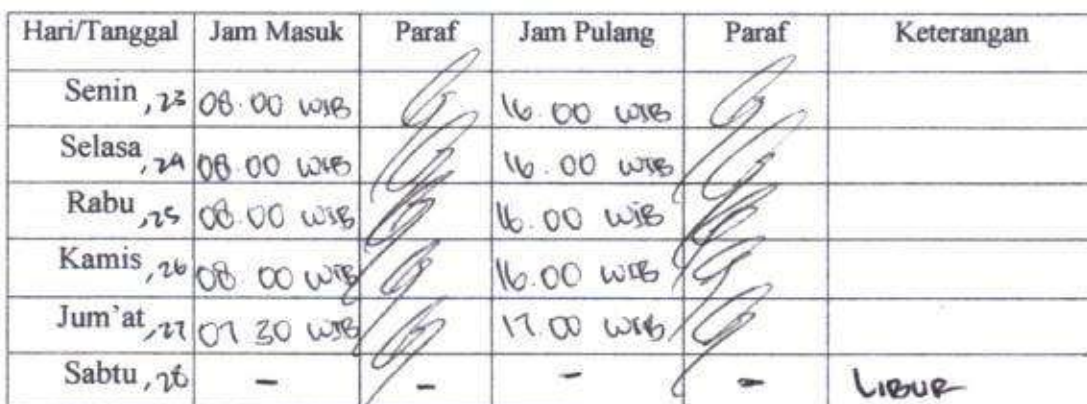 Hari/Tanggal Jam Masuk Paraf Jam Pulang Paraf Keterangan
Senin, 23 08.00 WIB 16.00 WIB
Selasa, 24 08.00 WIB 16.00 WIB
Rabu, 25 08.00 WIB 16.00 WIB
Kamis, 26 08.00 WIB 16.00 WIB
Jum'at, 27 07 30 WIB 17.00 WIB
Sabtu, 28 - - - - LIBUR